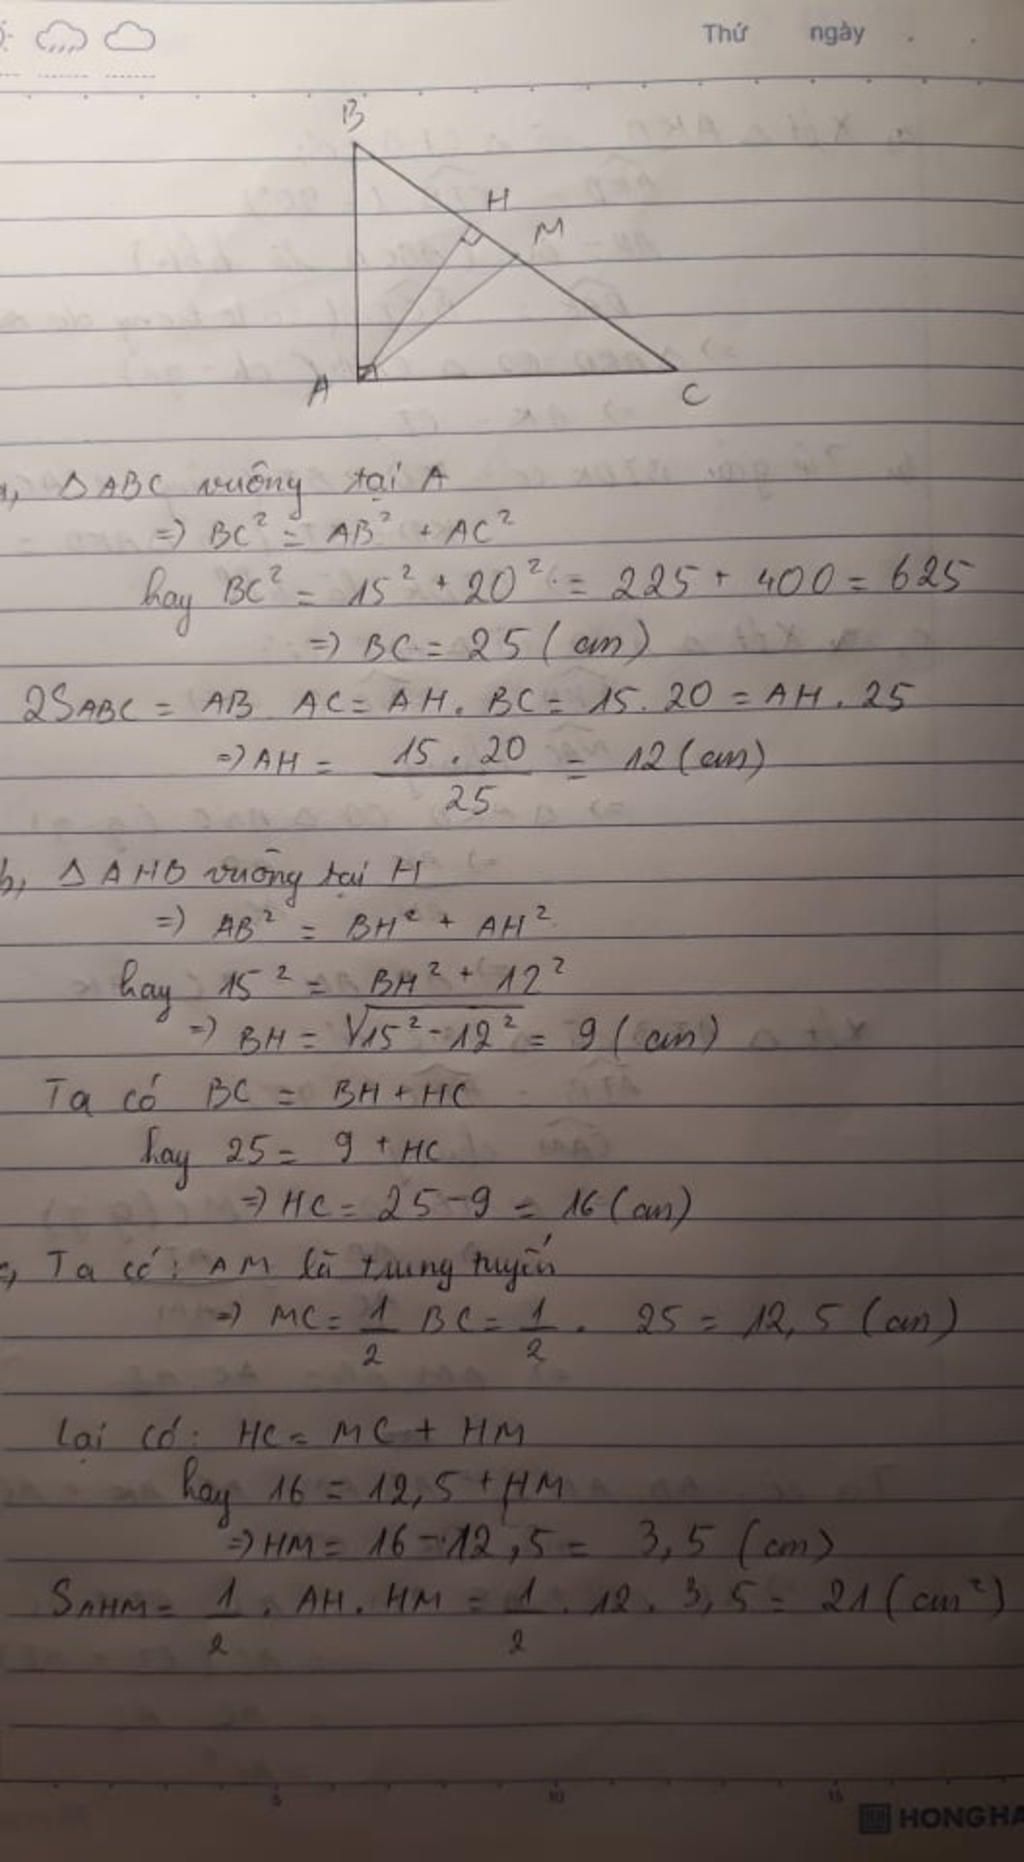 Thứ ngày
B
H
M
A
C
a, ΔABC vuông tại A
=> BC² = AB² + AC²
hay BC² = 15² + 20² = 225 + 400 = 625
=> BC = 25 (cm)
2SABC = AB AC = AH . BC = 15 . 20 = AH . 25
=> AH = 15 . 20 / 25 = 12 (cm)
b, ΔAHB vuông tại H
=> AB² = BH² + AH²
hay 15² = BH² + 12²
=> BH = √15² - 12² = 9 (cm)
Ta có BC = BH + HC
hay 25 = 9 + HC
=> HC = 25 - 9 = 16 (cm)
c, Ta có : AM là trung tuyến
=> MC = 1/2 BC = 1/2 . 25 = 12,5 (cm)
Lại có : HC = MC + HM
hay 16 = 12,5 + HM
=> HM = 16 - 12,5 = 3,5 (cm)
SAHM = 1/2 . AH . HM = 1/2 . 12 . 3,5 = 21 (cm²)
5 10 15
HONG HA